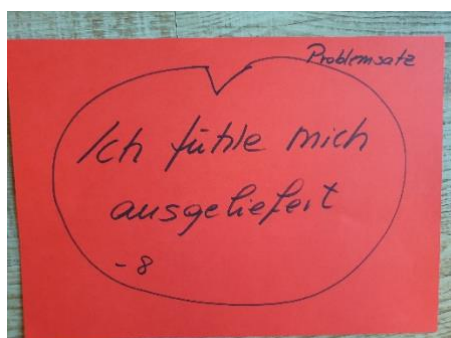 Problemsatz
Ich fühle mich
ausgeliefert
-8